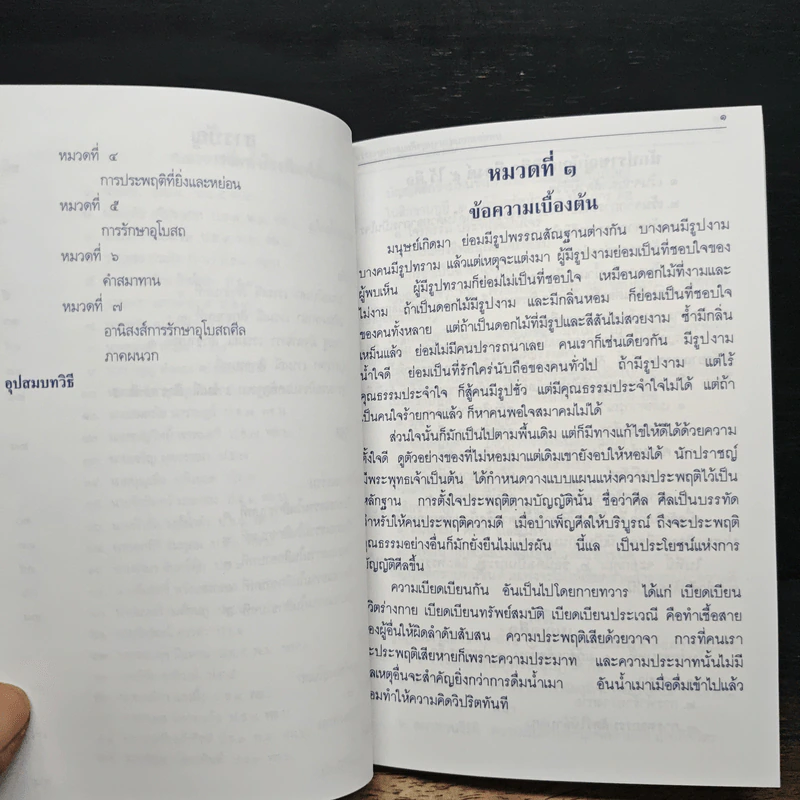 หมวดที่ ๔
การประพฤติที่ยิ่งและหย่อน
หมวดที่ ๕
การรักษาอุโบสถ
หมวดที่ ๖
คำสมาทาน
หมวดที่ ๗
อานิสงส์การรักษาอุโบสถศีล
ภาคผนวก
อุปสมบทวิธี
๑
หมวดที่ ๑
ข้อความเบื้องต้น
มนุษย์เกิดมา ย่อมมีรูปพรรณสัณฐานต่างกัน บางคนมีรูปงาม
บางคนมีรูปทราม แล้วแต่เหตุจะแต่งมา ผู้มีรูปงามย่อมเป็นที่ชอบใจของ
ผู้พบเห็น ผู้มีรูปทรามก็ย่อมไม่เป็นที่ชอบใจ เหมือนดอกไม้ที่งามและ
ไม่งาม ถ้าเป็นดอกไม้มีรูปงาม และมีกลิ่นหอม ก็ย่อมเป็นที่ชอบใจ
ของคนทั้งหลาย แต่ถ้าเป็นดอกไม้ที่มีรูปและสีสันไม่สวยงาม ซ้ำมีกลิ่น
เหม็นแล้ว ย่อมไม่มีคนปรารถนาเลย คนเราก็เช่นเดียวกัน มีรูปงาม
น้ำใจดี ย่อมเป็นที่รักใคร่นับถือของคนทั่วไป ถ้ามีรูปงาม แต่ไร้
คุณธรรมประจำใจ ก็สู้คนมีรูปชั่ว แต่มีคุณธรรมประจำใจไม่ได้ แต่ถ้า
เป็นคนใจร้ายกาจแล้ว ก็หาคนพอใจสมาคมไม่ได้
ส่วนใจนั้นก็มักเป็นไปตามพื้นเดิม แต่ก็มีทางแก้ไขให้ดีได้ด้วยความ
ตั้งใจดี ดูตัวอย่างของที่ไม่หอมมาแต่เดิมเขายังอบให้หอมได้ นักปราชญ์
มีพระพุทธเจ้าเป็นต้น ได้กำหนดวางแบบแผนแห่งความประพฤติไว้เป็น
หลักฐาน การตั้งใจประพฤติตามบัญญัตินั้น ชื่อว่าศีล ศีลเป็นบรรทัด
สำหรับให้คนประพฤติความดี เมื่อบำเพ็ญศีลให้บริบูรณ์ ถึงจะประพฤติ
คุณธรรมอย่างอื่นก็มักยั่งยืนไม่แปรผัน นี้แล เป็นประโยชน์แห่งการ
บัญญัติศีลขึ้น
ความเบียดเบียนกัน อันเป็นไปโดยกายทวาร ได้แก่ เบียดเบียน
ชีวิตร่างกาย เบียดเบียนทรัพย์สมบัติ เบียดเบียนประเวณี คือทำเชื้อสาย
ของผู้อื่นให้ผิดลำดับสับสน ความประพฤติเสียด้วยวาจา การที่คนเรา
จะประพฤติเสียหายก็เพราะความประมาท และความประมาทนั้นไม่มี
มูลเหตุอื่นจะสำคัญยิ่งกว่าการดื่มน้ำเมา อันน้ำเมาเมื่อดื่มเข้าไปแล้ว
ย่อมทำให้ความคิดวิปริตทันที